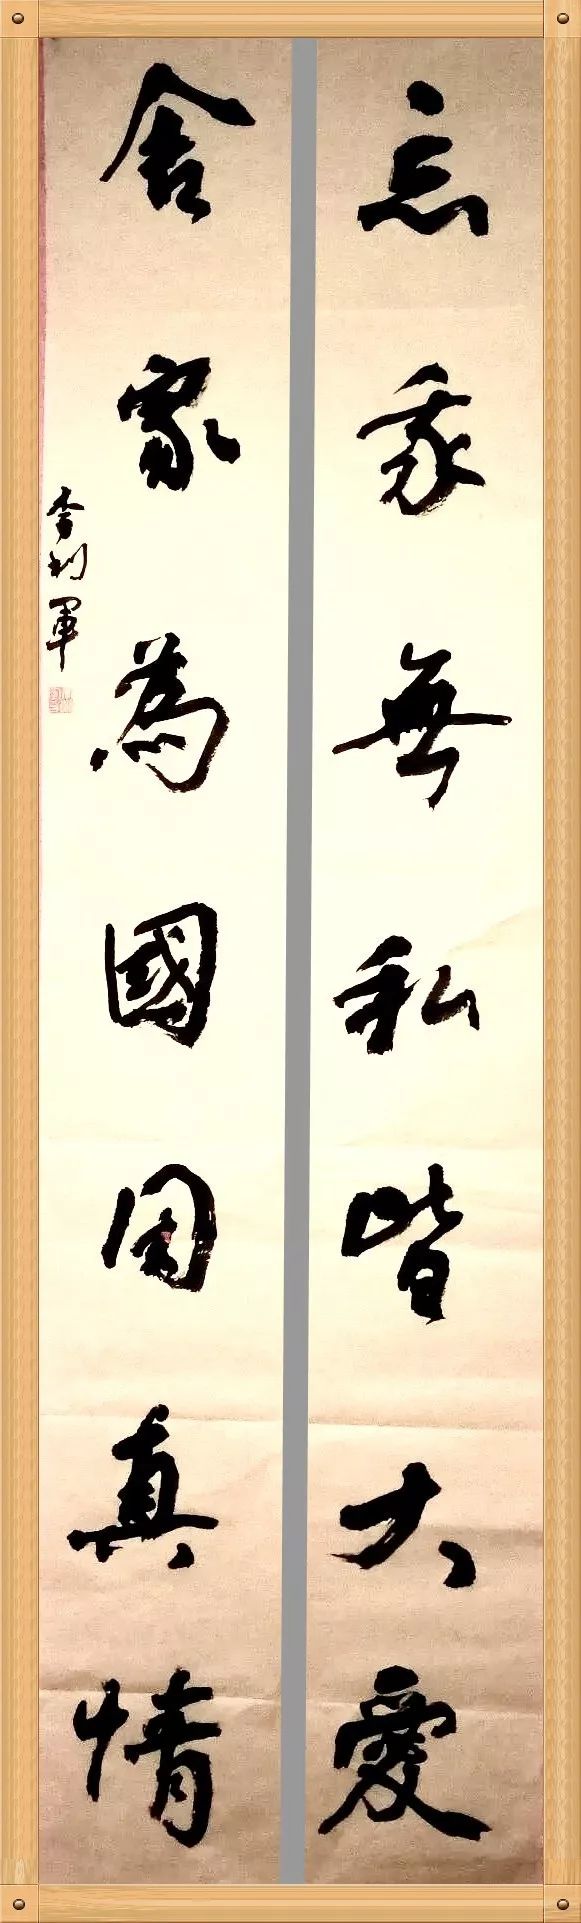 忘我無私皆大愛
舍家為國真情
李利軍